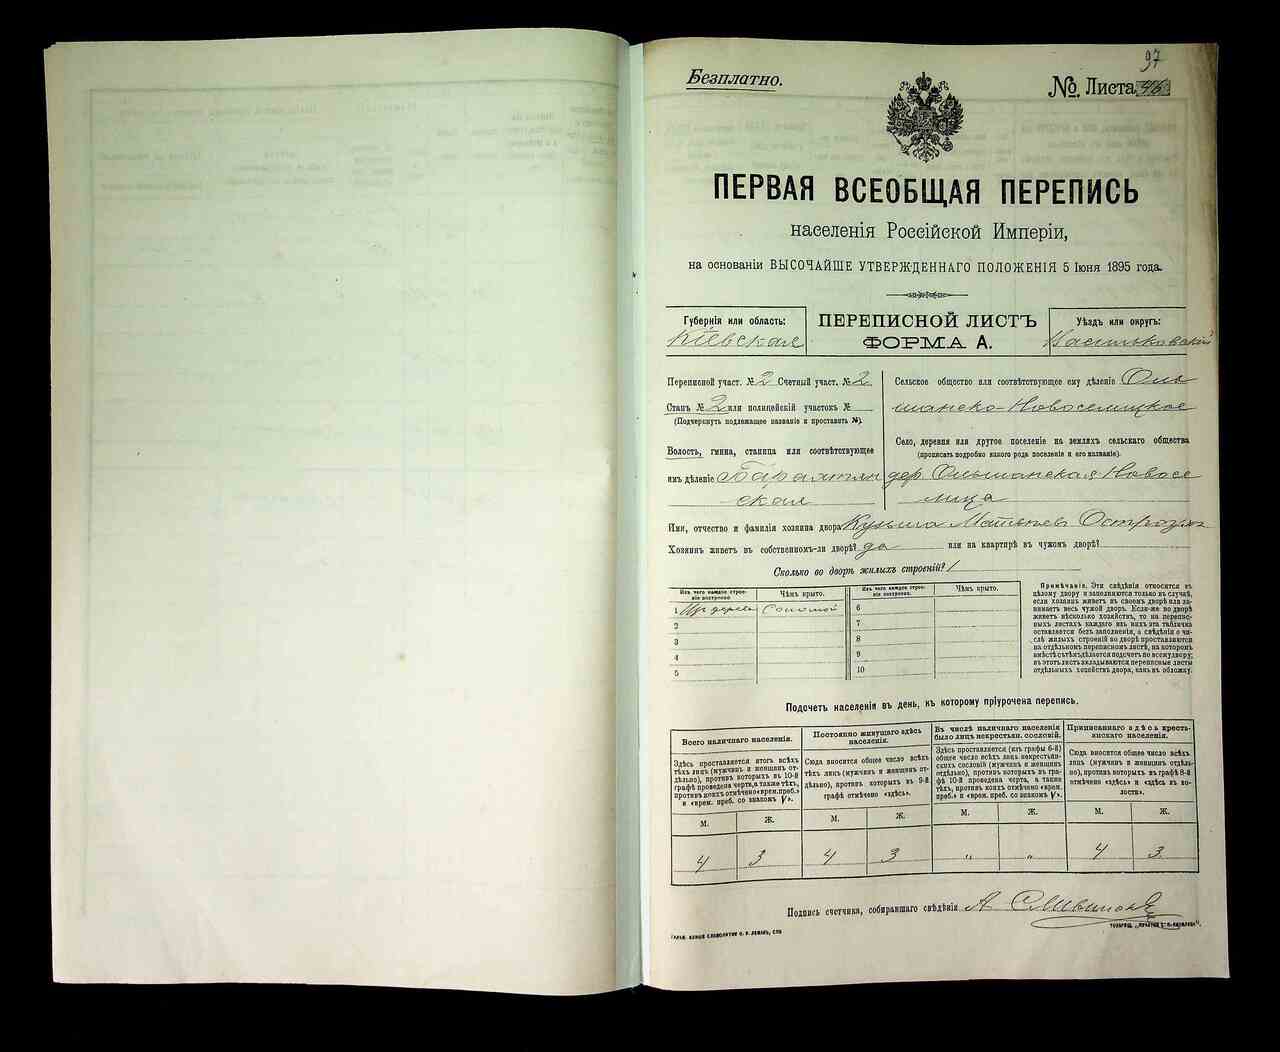 97
Безплатно.
№ Листа 46
ПЕРВАЯ ВСЕОБЩАЯ ПЕРЕПИСЬ
населенія Россійской Имперіи,
на основаніи ВЫСОЧАЙШЕ УТВЕРЖДЕННАГО ПОЛОЖЕНІЯ 5 Іюня 1895 года.
Губернія или область:
Кіевская
ПЕРЕПИСНОЙ ЛИСТЪ
ФОРМА А.
Уѣздъ или округъ:
Васильковскій
Переписной участ. № 2 Счетный участ. № 2
Станъ № 2 или полицейскій участокъ №
(Подчеркнуть подлежащее названіе и проставить №).
Волость, гмина, станица или соотвѣтствующее
имъ дѣленіе Барахтян
ская
Сельское общество или соотвѣтствующее ему дѣленіе Оль
шанско-Новоселицкое
Село, деревня или другое поселеніе на земляхъ сельскаго общества
(прописать подробно какого рода поселеніе и его названіе).
дер. Ольшанская Новосе
лица
Имя, отчество и фамилія хозяина двора Кузьма Матвѣев
Хозяинъ живетъ въ собственномъ-ли дворѣ? да или на квартирѣ въ чужомъ дворѣ?
Сколько во дворѣ жилыхъ строеній? 1
Изъ чего каждое строе-
ніе построено
Чѣмъ крыто.
1 Из дерева Соломой
2
3
4
5
Изъ чего каждое строе-
ніе построено
Чѣмъ крыто.
6
7
8
9
10
Примѣчаніе. Эти свѣдѣнія относятся къ
цѣлому двору и заполняются только въ случаѣ,
если хозяинъ живетъ въ своемъ дворѣ или за-
нимаетъ весь чужой дворъ. Если-же во дворѣ
живетъ нѣсколько хозяйствъ, то на перепис-
ныхъ листахъ каждаго изъ нихъ эта табличка
оставляется безъ заполненія, а свѣдѣнія о чи-
слѣ жилыхъ строеній во дворѣ проставляются
на отдѣльномъ переписномъ листѣ, на которомъ
вмѣстѣ съ тѣмъ дѣлается подсчетъ по всему двору;
въ этотъ листъ вкладываются переписные листы
отдѣльныхъ хозяйствъ двора, какъ въ обложку.
Подсчетъ населенія въ день, къ которому пріурочена перепись.
Всего наличнаго населенія.
Здѣсь проставляется итогъ всѣхъ
тѣхъ лицъ (мужчинъ и женщинъ от-
дѣльно), противъ которыхъ въ 10-й
графѣ проведена черта, а также тѣхъ,
противъ коихъ отмѣчено «врем. преб.»
и «врем. преб. со знакомъ V».
М. Ж.
4 3
Постоянно живущаго здѣсь
населенія.
Сюда вносится общее число всѣхъ
тѣхъ лицъ (мужчинъ и женщинъ от-
дѣльно), противъ которыхъ въ 9-й
графѣ отмѣчено «здѣсь».
М. Ж.
4 3
Въ числѣ наличнаго населенія
было лицъ некрестьян. сословій.
Здѣсь проставляется (изъ графы 6-й)
общее число всѣхъ лицъ некрестьян-
скихъ сословій (мужчинъ и женщинъ
отдѣльно), противъ которыхъ въ гра-
фѣ 10-й проведена черта, а также
тѣхъ, противъ коихъ отмѣчено «врем.
преб.» и «врем. преб. со знакомъ V».
М. Ж.
" "
Приписаннаго здѣсь кресть-
янскаго населенія.
Сюда вносится общее число всѣхъ
лицъ (мужчинъ и женщинъ отдѣль-
но), противъ которыхъ въ графѣ 8-й
отмѣчено «здѣсь» и «здѣсь въ во-
лости».
М. Ж.
4 3
Подпись счетчика, собиравшаго свѣдѣнія А